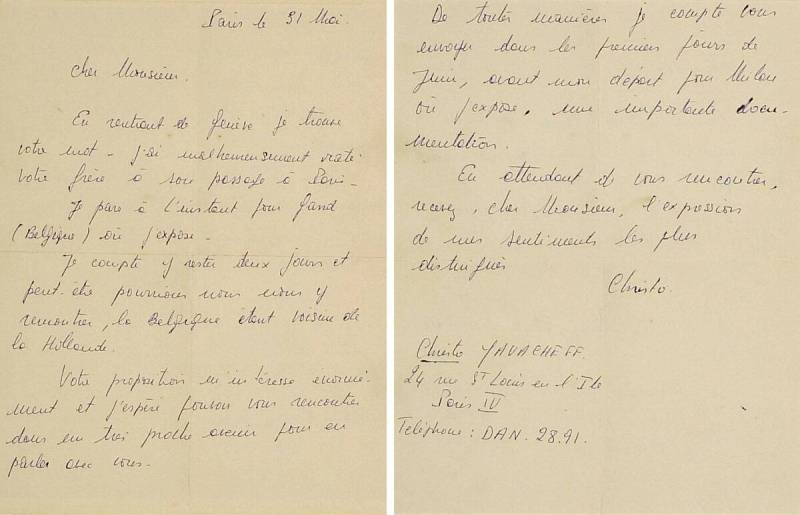 Paris le 31 Mai.
Cher Monsieur.
En rentrant de Genève je trouve
votre mot - j'ai malheureusement raté
votre frère à son passage à Paris -
Je pars à l'instant pour Gand
(Belgique) où j'expose -
Je compte y rester deux jours et
peut-être pourrions nous nous y
rencontrer, la Belgique étant voisine de
la Hollande.
Votre proposition m'intéresse énormé-
ment et j'espère pouvoir vous rencontrer
dans un très proche avenir pour en
parler avec vous -
De toutes manières je compte vous
envoyer dans les premiers jours de
Juin, avant mon départ pour Milan
où j'expose, une importante docu-
mentation.
En attendant de vous rencontrer,
recevez, cher Monsieur, l'expression
de mes sentiments les plus
distingués
Christo.
Christo YAVACHEFF.
24 rue St Louis en l'Ile
Paris IV
Téléphone : DAN. 28.91.